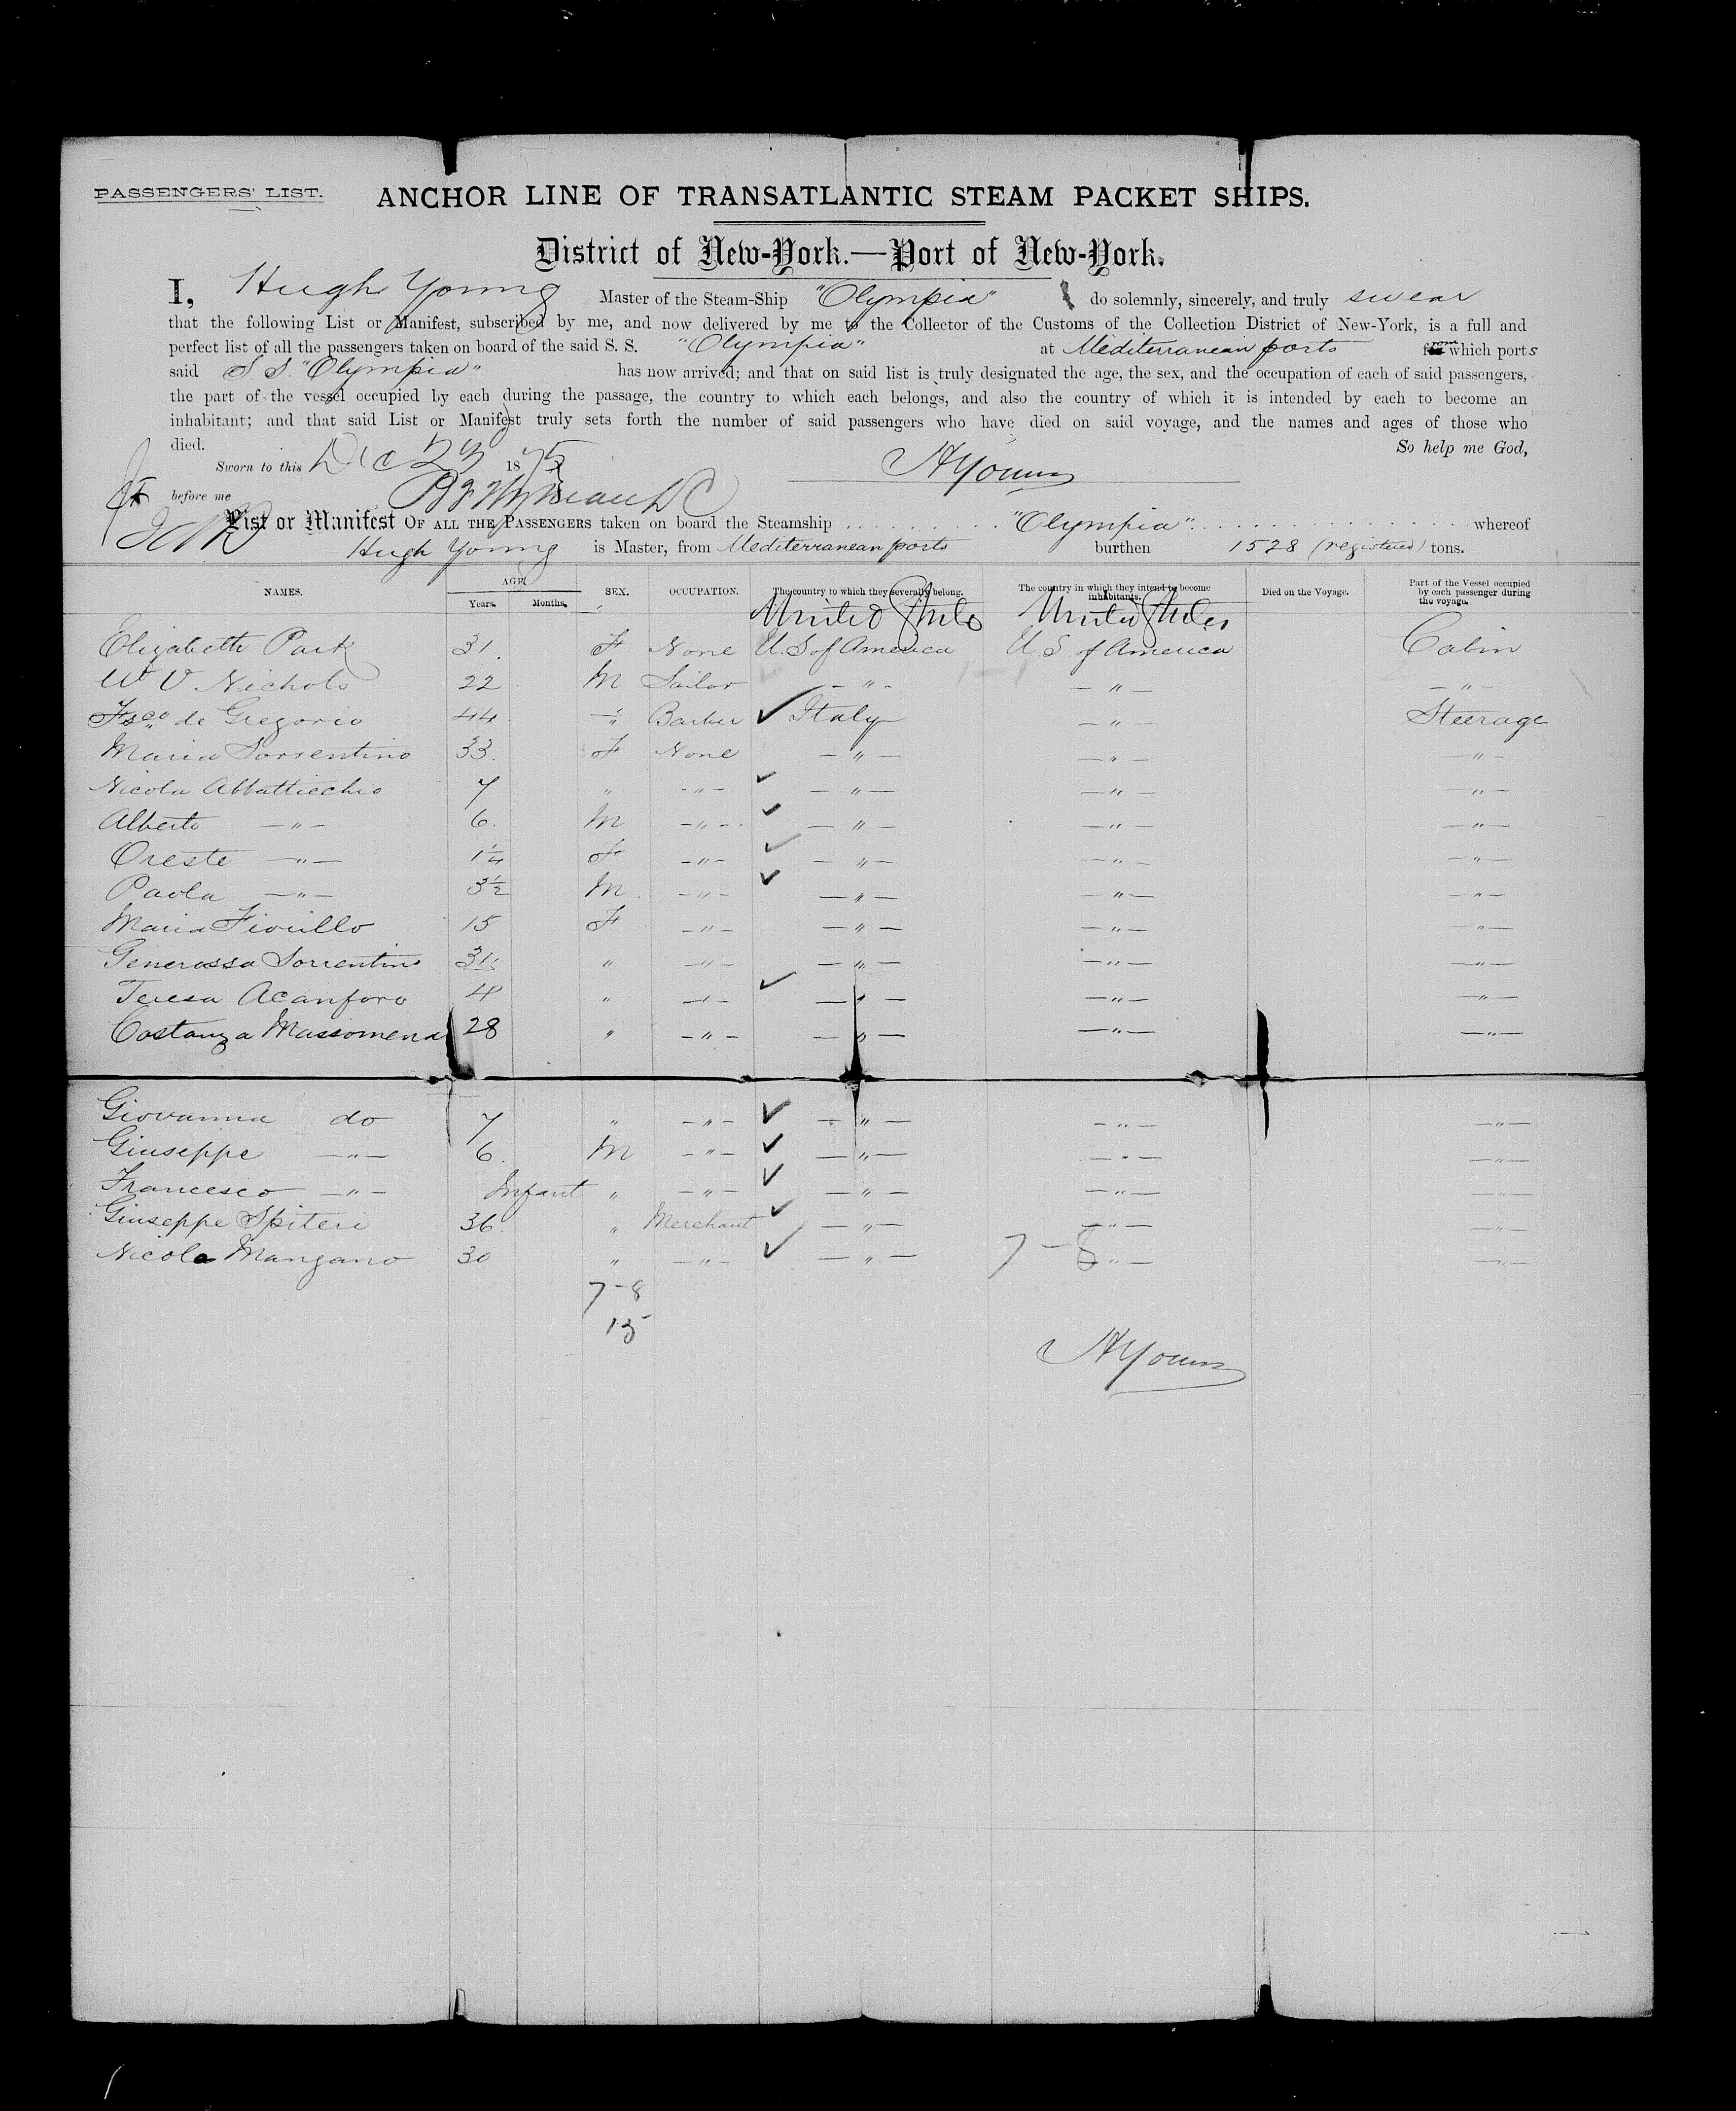 PASSENGERS' LIST. ANCHOR LINE OF TRANSATLANTIC STEAM PACKET SHIPS.
District of New-York.—Port of New-York.
I, Hugh Young Master of the Steam-Ship "Olympia" do solemnly, sincerely, and truly swear
that the following List or Manifest, subscribed by me, and now delivered by me to the Collector of the Customs of the Collection District of New-York, is a full and
perfect list of all the passengers taken on board of the said S. S. "Olympia" at Mediterranean ports from which ports
said S S. "Olympia" has now arrived; and that on said list is truly designated the age, the sex, and the occupation of each of said passengers,
the part of the vessel occupied by each during the passage, the country to which each belongs, and also the country of which it is intended by each to become an
inhabitant; and that said List or Manifest truly sets forth the number of said passengers who have died on said voyage, and the names and ages of those who
died. So help me God,
Sworn to this Dec 23 1875 HYoung
before me
List or Manifest OF ALL THE PASSENGERS taken on board the Steamship "Olympia" whereof
Hugh Young is Master, from Mediterranean ports burthen 1528 (registered) tons.
NAMES. AGE. Years. Months. SEX. OCCUPATION. The country to which they severally belong. The country in which they intend to become inhabitants. Died on the Voyage. Part of the Vessel occupied by each passenger during the voyage.
United States United States
Elizabeth Park 31. F None U.S of America U.S. of America Cabin
W V Nichols 22 M Sailor — " — — " — — " —
Fsco de Gregorio 44 — " Barber ✓ Italy — " — Steerage
Maria Sorrentino 33. F None — " — — " — — " —
Nicola Abbattiechio 7 " — " — ✓ — " — — " — — " —
Alberto — " — 6. M — " — ✓ — " — — " — — " —
Oreste — " — 1¼ F — " — ✓ — " — — " — — " —
Paola — " — 3½ M — " — ✓ — " — — " — — " —
Maria Fiorillo 15 F — " — — " — — " — — " —
Generossa Sorrentino 31. " — " — — " — — " — — " —
Teresa Acanforo 4 " — " — ✓ — " — — " — — " —
Costanza Massomena 28 " — " — — " — — " — — " —
Giovanna do 7 " — " — ✓ — " — — " — — " —
Giuseppe — " — 6. M — " — ✓ — " — — " — — " —
Francesco — " — Infant " — " — ✓ — " — — " — — " —
Giuseppe Spiteri 36. " Merchant ✓ — " — — " — — " —
Nicola Mangano 30 " — " — ✓ — " — 7-8 — " — — " —
7-8
15
HYoung